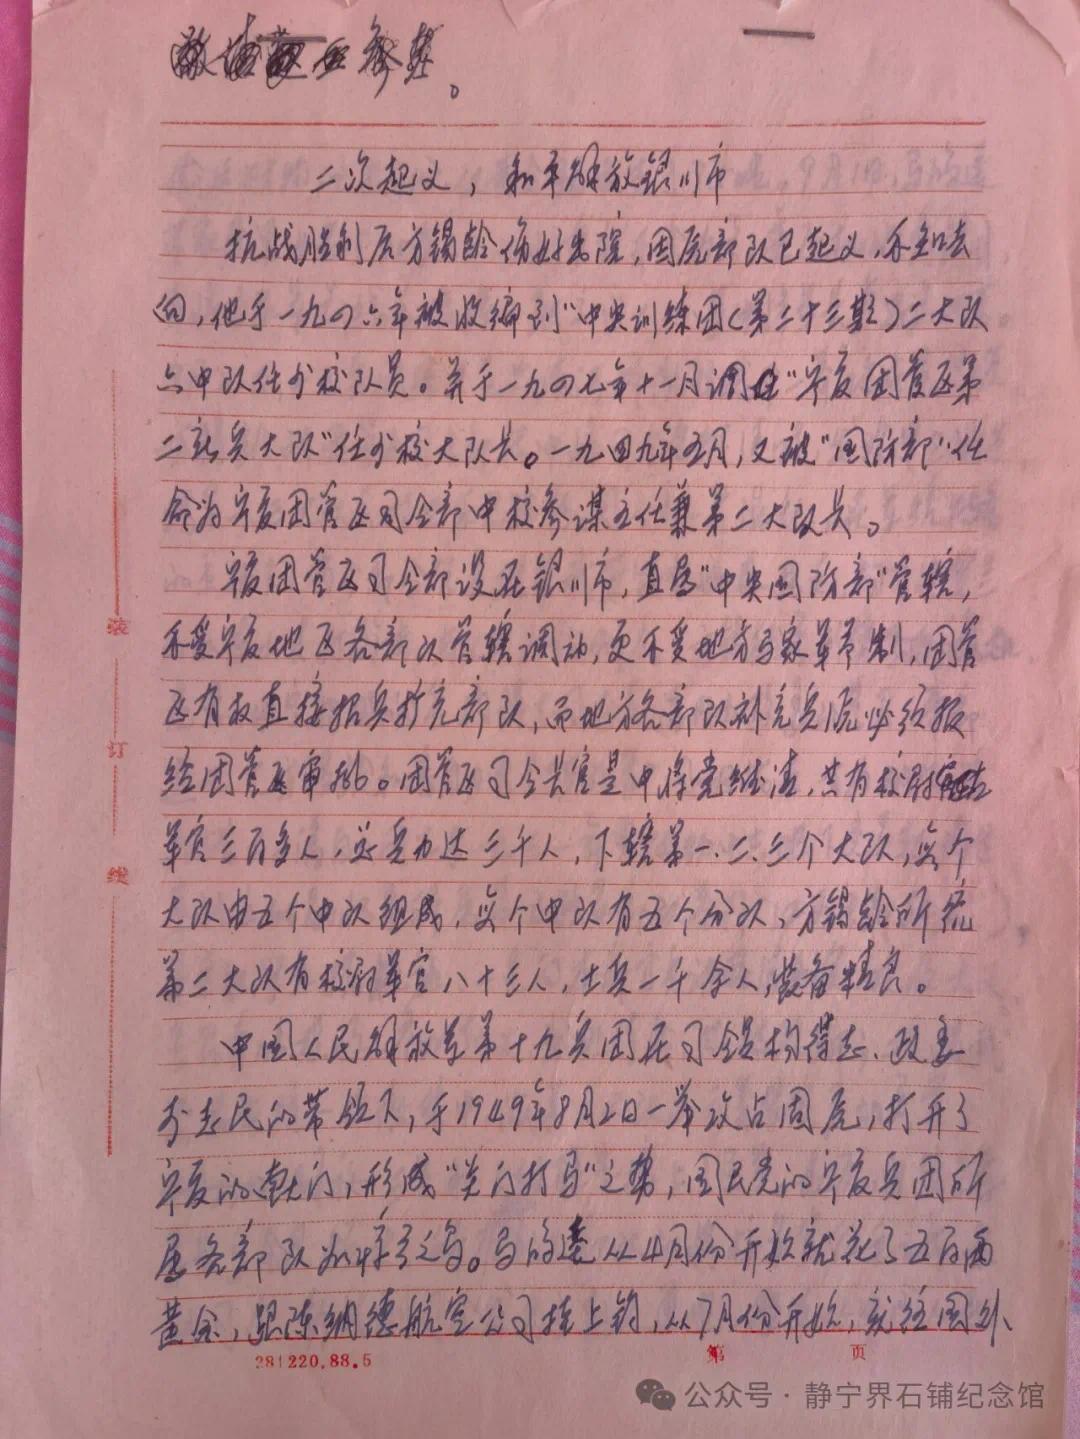 二次起义，和平解放银川市
抗战胜利后方锡龄伤好出院，因原部队已起义，不知去
向，他于一九四六年被收编到“中央训练团（第二十三期）二大队
六中队任少校队员。并于一九四七年十一月调任“宁夏团管区第
二新兵大队”任少校大队长。一九四九年五月，又被“国防部”任
命为宁夏团管区司令部中校参谋主任兼第二大队长。
宁夏团管区司令部设在银川市，直属“中央国防部”管辖，
不受宁夏地区各部队管辖调动，更不受地方马家军节制，团管
区有权直接招兵扩充部队，而地方各部队补充兵源必须报
经团管区审批。团管区司令长官是中将党维清，共有校尉
军官三百多人，总兵力达三千人，下辖第一、二、三个大队，每个
大队由五个中队组成，每个中队有五个分队，方锡龄所统
第二大队有校尉军官八十三人，士兵一千余人，装备精良。
中国人民解放军第十九兵团在司令员杨得志、政委
李志民的带领下，于1949年8月2日一举攻占固原，打开了
宁夏的南大门，形成“关门打马”之势，国民党的宁夏兵团所
属各部队如惊弓之鸟。马鸿逵从4月份开始就花了五百两
黄金，跟陈纳德航空公司挂上钩，从7月份开始，就往国外
装
订
线
281220.88.5
第 页
公众号·静宁界石铺纪念馆